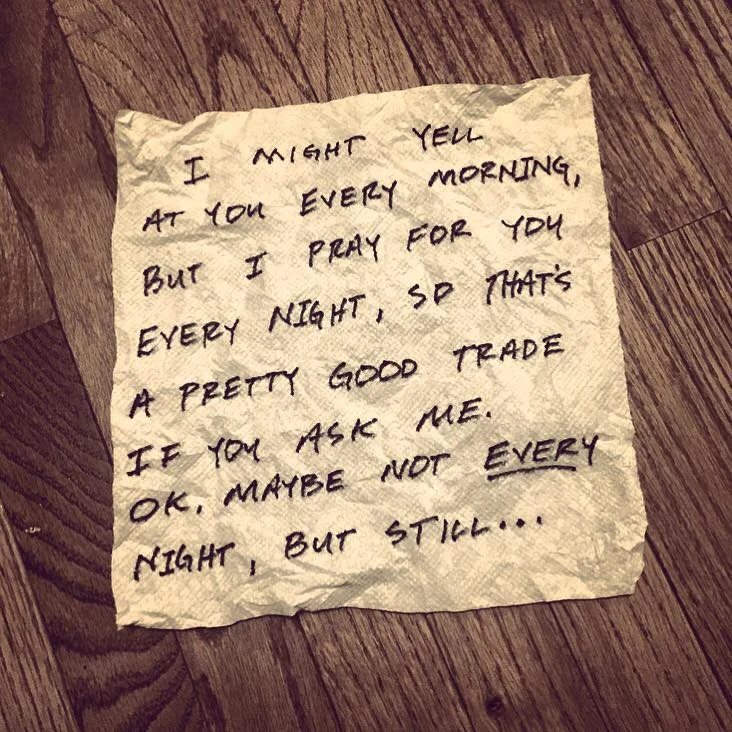 I MIGHT YELL
AT YOU EVERY MORNING,
BUT I PRAY FOR YOU
EVERY NIGHT, SO THAT'S
A PRETTY GOOD TRADE
IF YOU ASK ME.
OK, MAYBE NOT EVERY
NIGHT, BUT STILL...